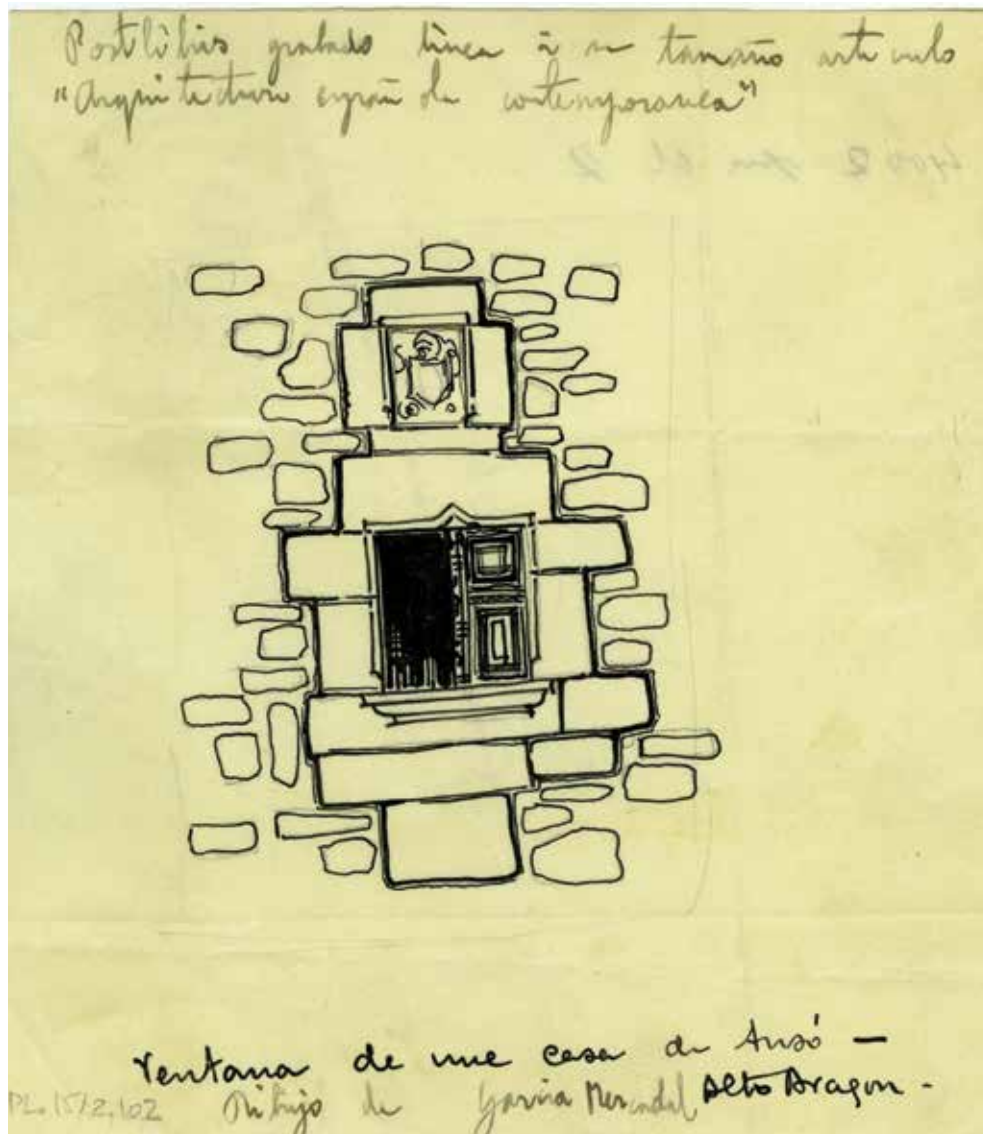 Postlibris grabado línea à su tamaño artículo
"Arquitectura española contemporanea"
Ventana de une casa de Ansó —
Alto Aragon -
PL.15/2,102 Dibujo de García Mercadal